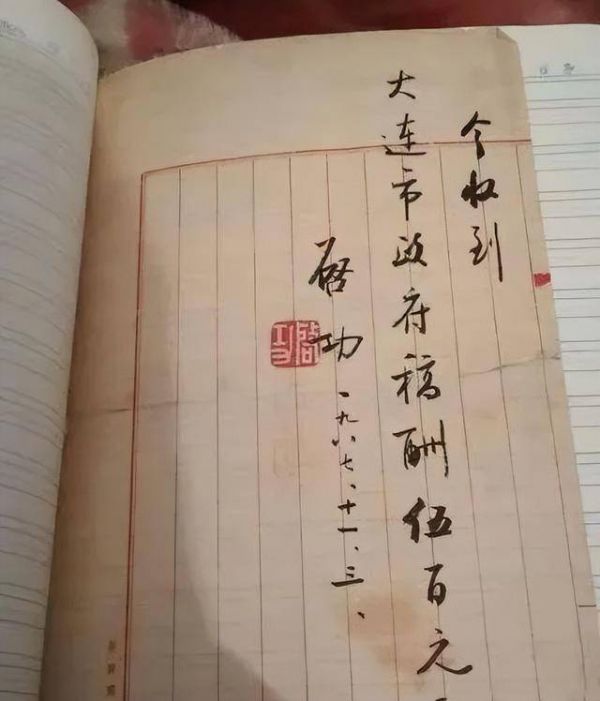 今收到
大连市政府稿酬伍百元
啓功 一九八七、十一、三、
啓功